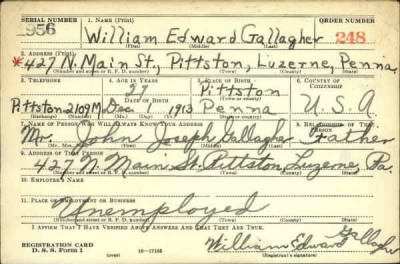 SERIAL NUMBER 1. NAME (Print) ORDER NUMBER
956 William Edward Gallagher 248
(First) (Middle) (Last)
2. ADDRESS (Print)
*427 N. Main St., Pittston, Luzerne, Penna.
(Number and street or R. F. D. number) (Town) (County) (State)
3. TELEPHONE 4. AGE IN YEARS 5. PLACE OF BIRTH 6. COUNTRY OF CITIZENSHIP
27 Pittston
DATE OF BIRTH
Pittston 2109M Dec 1 1913 Penna U.S.A.
7. NAME OF PERSON WHO WILL ALWAYS KNOW YOUR ADDRESS 8. RELATIONSHIP OF THAT PERSON
Mr. John Joseph Gallagher Father
(Mr., Mrs., Miss) (First) (Middle) (Last)
9. ADDRESS OF THAT PERSON
427 N. Main St. Pittston, Luzerne, Pa.
(Number and street or R. F. D. number) (Town) (County) (State)
10. EMPLOYER'S NAME
11. PLACE OF EMPLOYMENT OR BUSINESS
Unemployed
(Number and street or R. F. D. number) (Town) (County) (State)
I AFFIRM THAT I HAVE VERIFIED ABOVE ANSWERS AND THAT THEY ARE TRUE.
REGISTRATION CARD
D. S. S. Form 1 (over) William Edward Gallagher
(Registrant's signature)